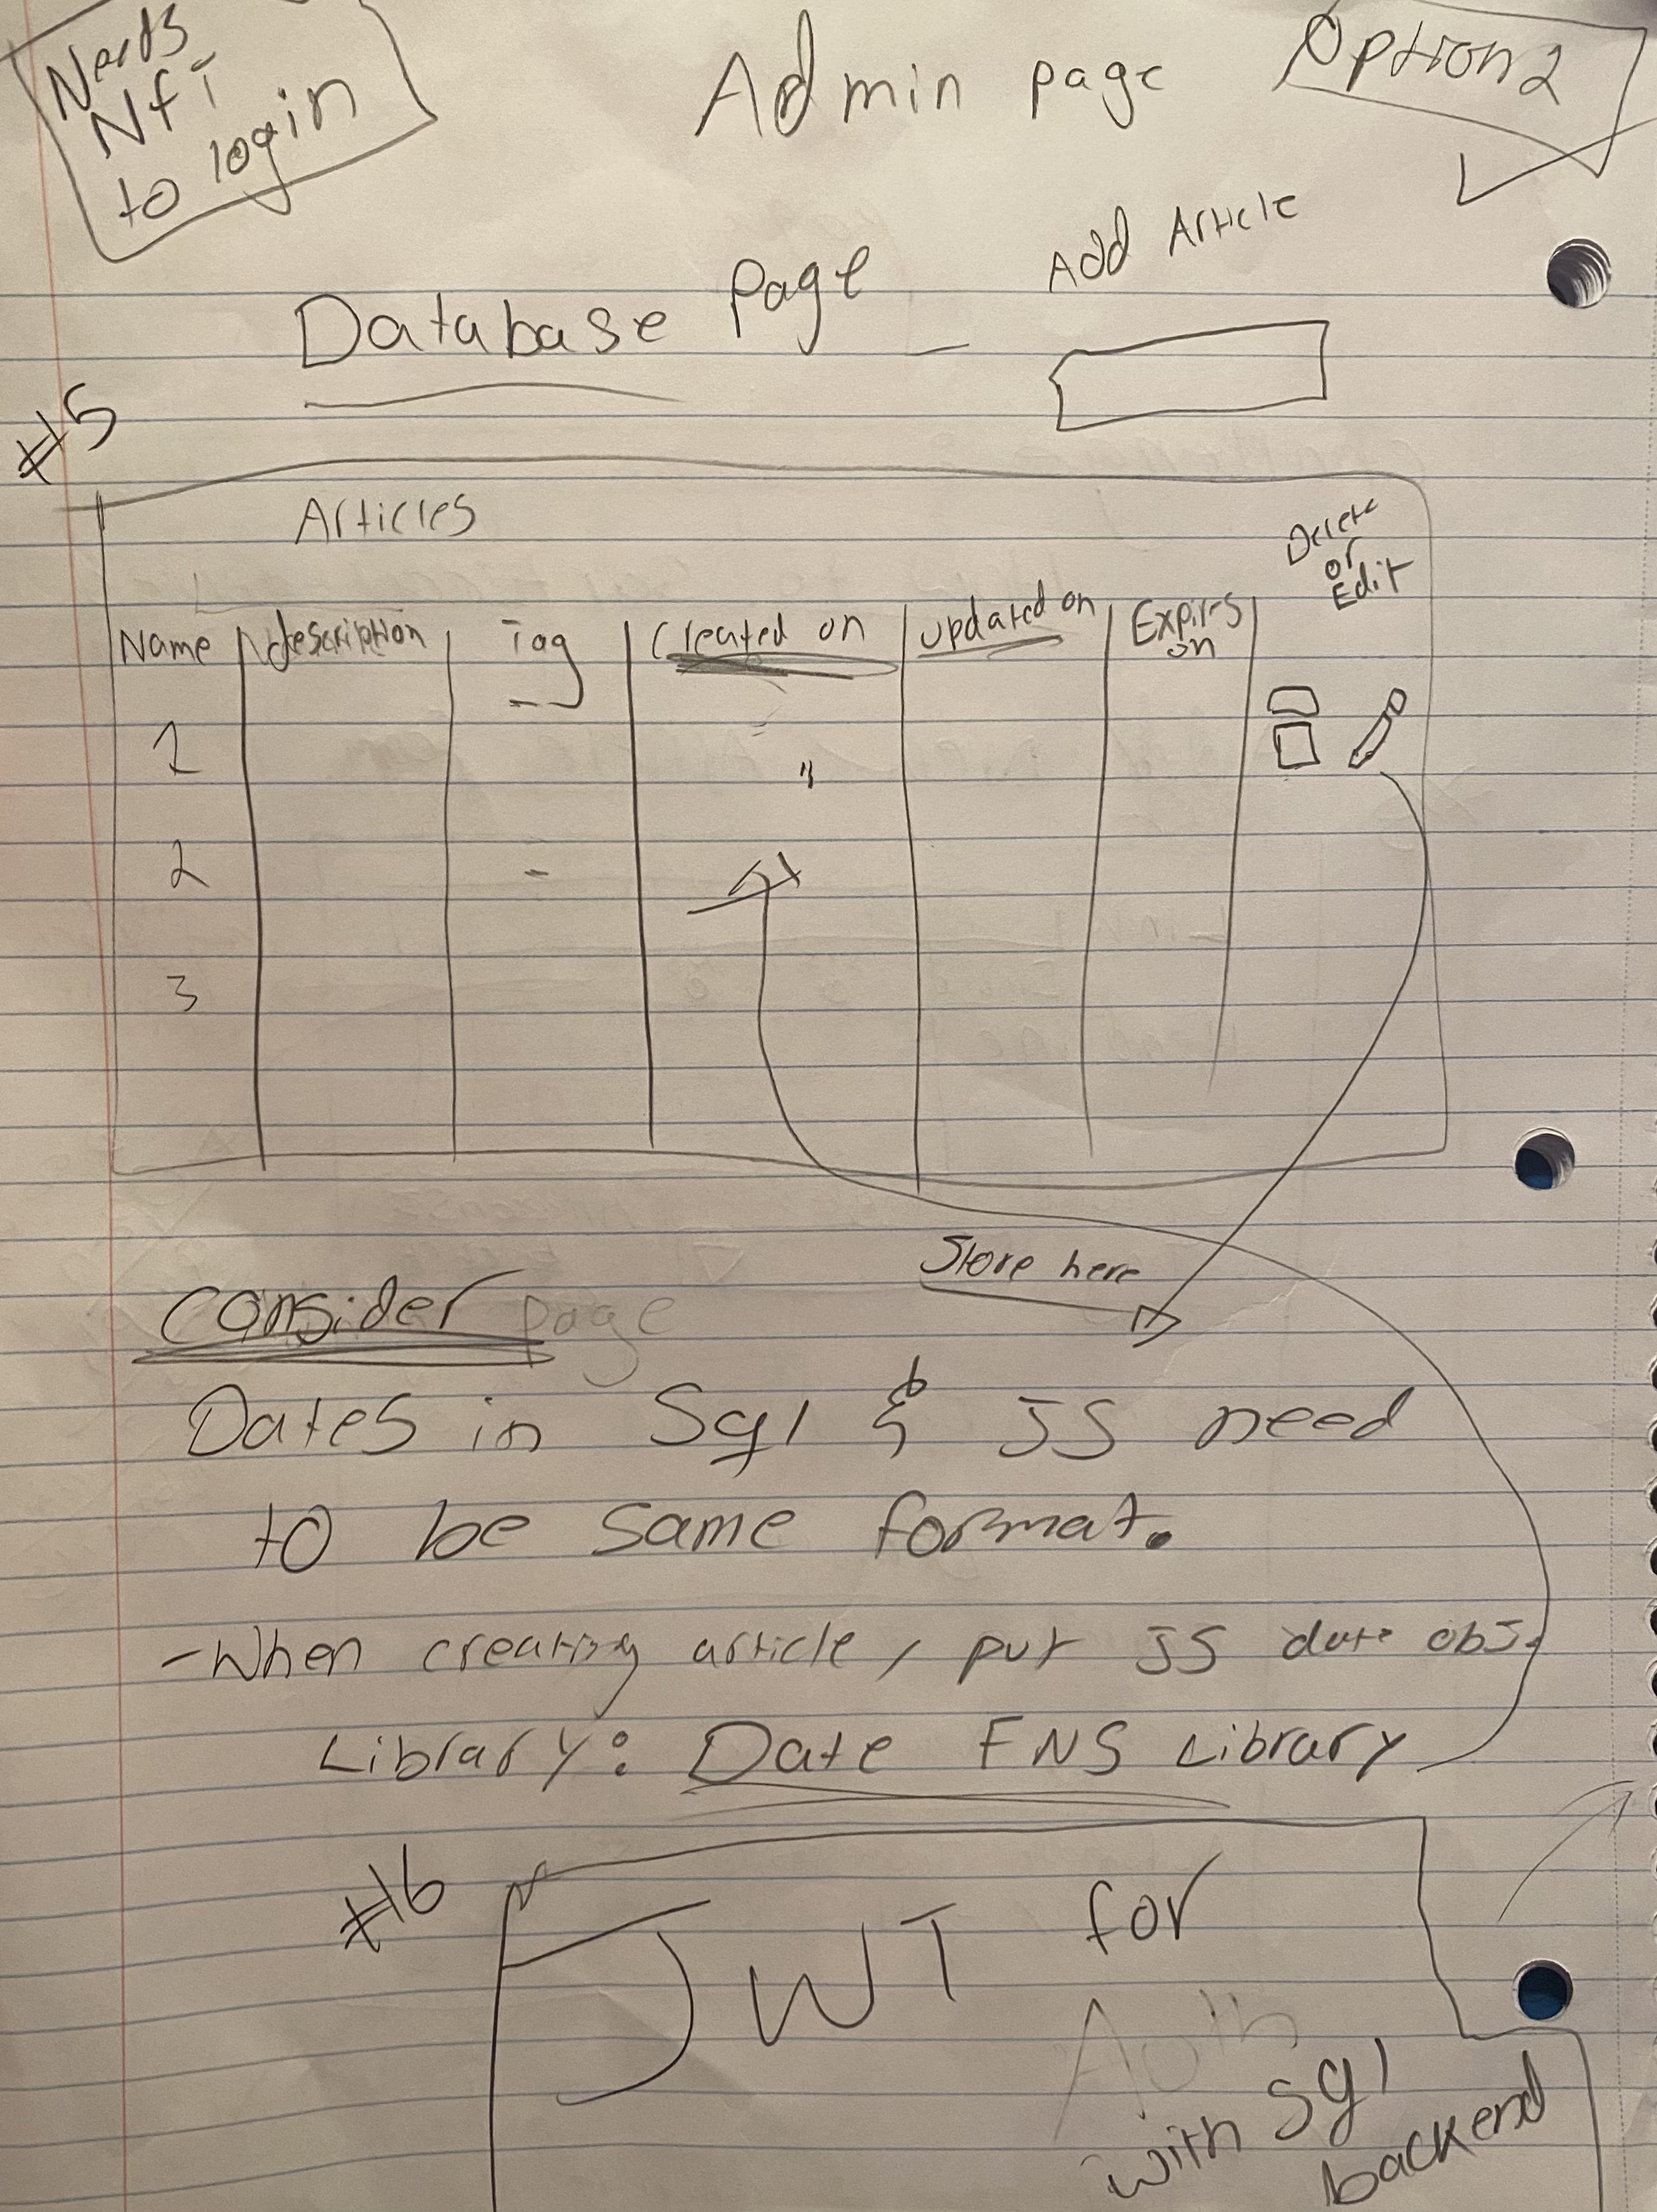 Needs
NFT
to login
Admin page
Option 2
Database Page
Add Article
#5
Articles
Delete
or
Edit
Name
description
Tag
Created on
updated on
Expires
on
1
"
2
-
3
Store here
consider page
Dates in Sql & JS need
to be same format.
- When creating article, put JS date obj.
Library: Date FNS Library
#6
JWT for
Auth
with sql
backend